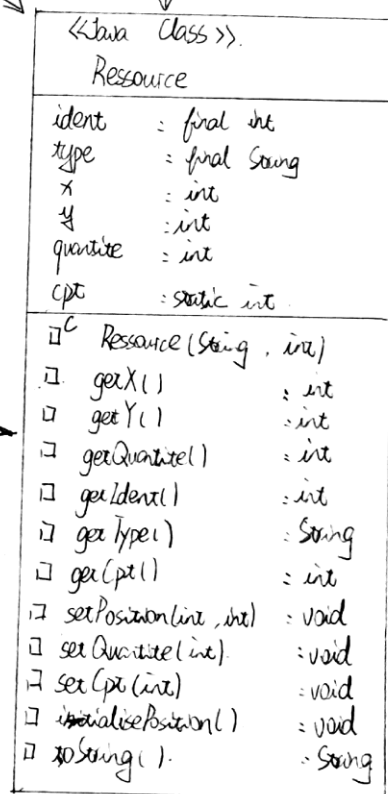 <<Java Class>>.
Ressource
ident : final int
type : final String
x : int
y : int
quantite : int
cpt : static int.
□C Ressource (String, int)
□ getX() : int
□ getY() : int
□ getQuantite() : int
□ getIdent() : int
□ getType() : String
□ getCpt() : int
□ setPosition(int, int) : void
□ setQuantite(int). : void
□ setCpt(int) : void
□ initialisePosition() : void
□ toString(). : String